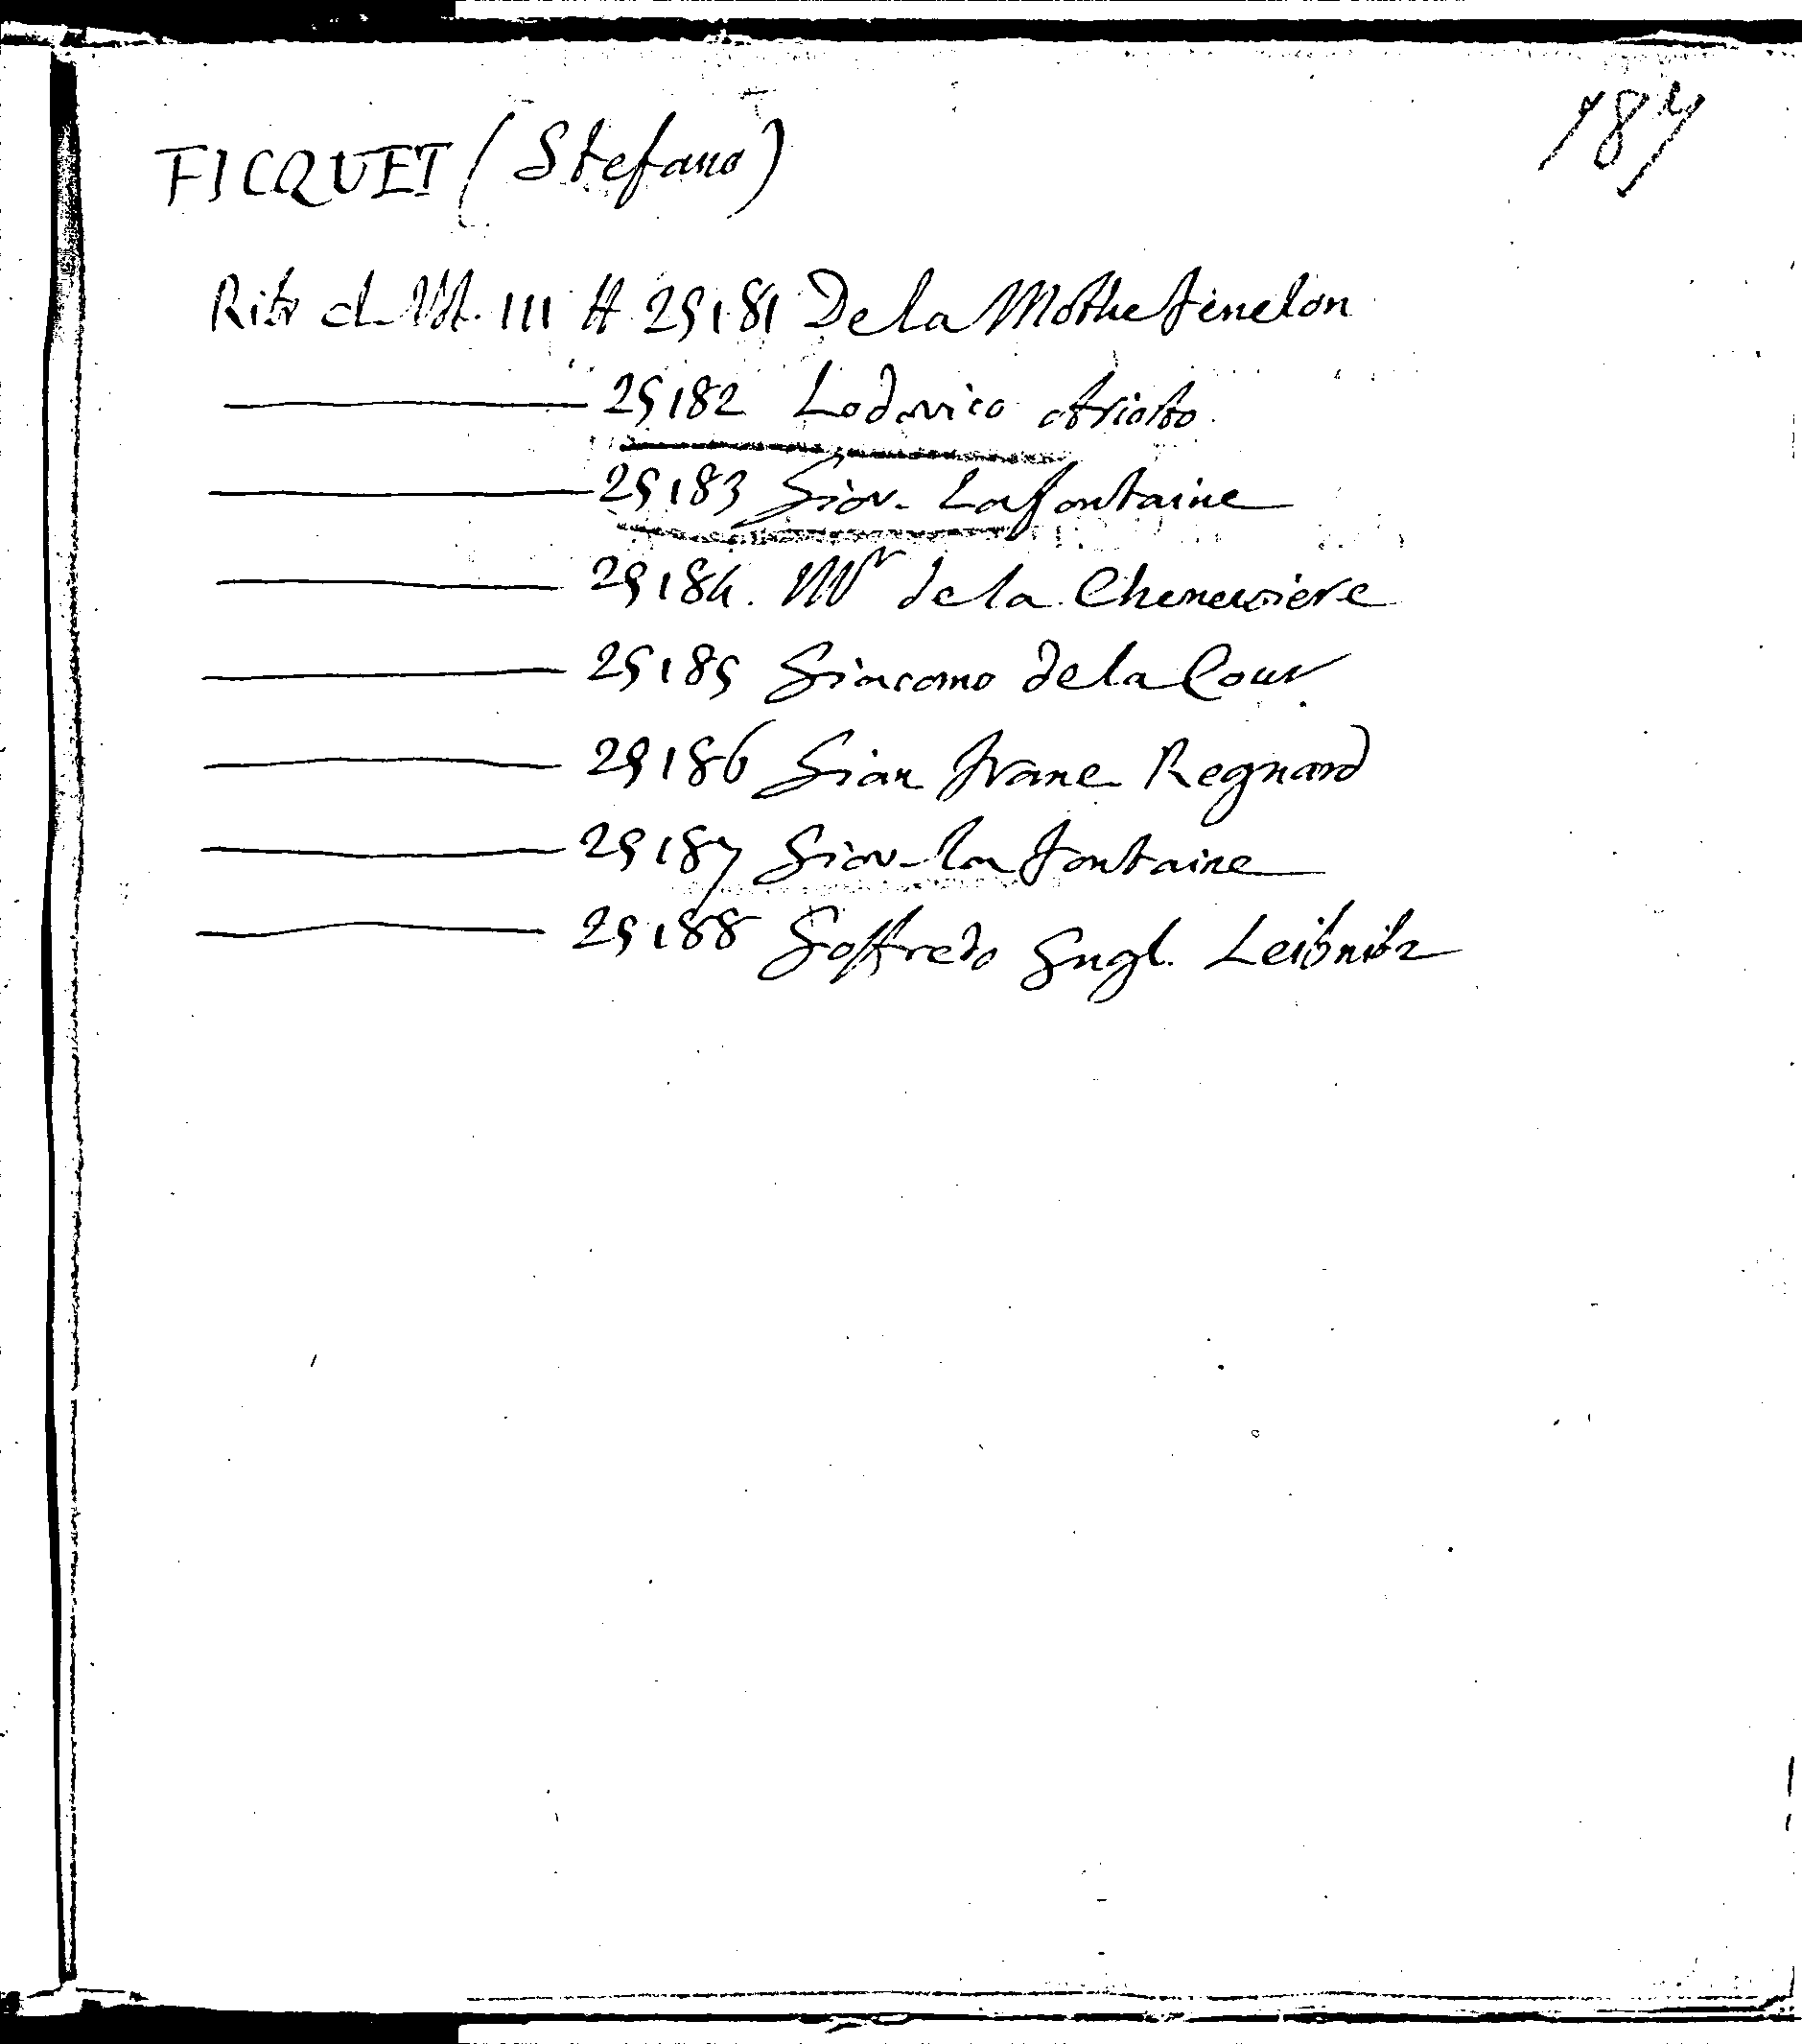 187
FICQUET (Stefano)
Ritr cl. Vol. III # 25181 De la Mothe fenelon
25182 Lodovico Ariosto
25183 Giov. Lafontaine
25184. Mr de la Cheneviere
25185 Giacomo de la Cour
25186 Gian Franc Regnard
25187 Giov. la Fontaine
25188 Goffredo Gugl. Leibnitz